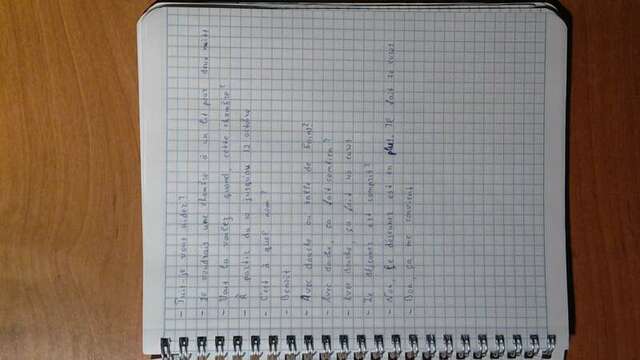 - Puis-je vous aider?
- Je voudrais une chambre à un lit pour deux nuits
- Vous la voulez quand, cette chambre?
- À partir du 10 jusqu'au 12 octobre
- C'est à quel nom?
- Benoit
- Avec douche ou salle de bains?
- Avec douche, ça fait combien?
- Avec douche, ça fait 40 euros
- Le déjeuner est compris?
- Non, le déjeuner est en plus. Il fait euros
- Bon, ça me convient